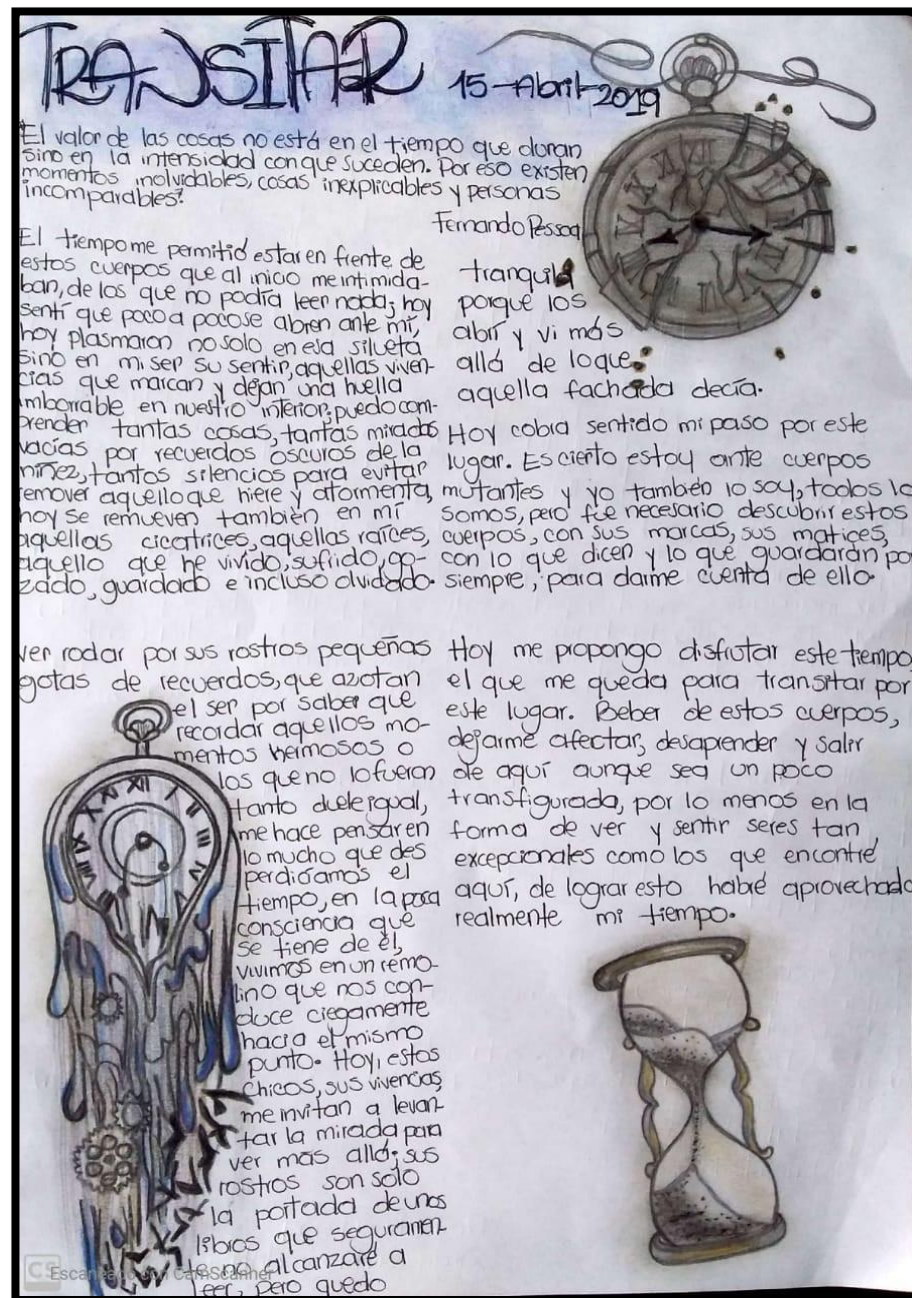 TRANSITAR
15-Abril-2019
El valor de las cosas no está en el tiempo que duran
sino en la intensidad con que suceden. Por eso existen
momentos inolvidables, cosas inexplicables y personas
incomparables?
Fernando Pessoa
El tiempo me permitió estar en frente de
estos cuerpos que al inicio me intimida-
ban, de los que no podía leer nada; hoy
sentí que poco a poco se abren ante mí,
hoy plasmaron no solo, en esa silueta
sino en mi ser su sentir, aquellas viven-
cias que marcan y dejan una huella
imborrable en nuestro interior; puedo com-
prender tantas cosas, tantas miradas
vacías por recuerdos oscuros de la
niñez, tantos silencios para evitar
remover aquello que hiere y atormenta,
hoy se remueven también en mí
aquellas cicatrices, aquellas raíces,
aquello que he vivido, sufrido, go-
zado, guardado e incluso olvidado.
ver rodar por sus rostros pequeñas
gotas de recuerdos, que azotan
el ser por saber que
recordar aquellos mo-
mentos hermosos o
los que no lo fueron
tanto duele igual,
me hace pensar en
lo mucho que des
perdiciamos el
tiempo, en la poca
consciencia que
se tiene de él,
vivimos en un remo-
lino que nos con-
duce ciegamente
hacia el mismo
punto. Hoy, estos
chicos, sus vivencias
me invitan a levan-
tar la mirada para
ver más allá; sus
rostros son solo
la portada de unos
libros que seguramen
te no alcanzaré a
leer, pero quedo
tranquila
porque los
abrí y vi más
allá de lo que
aquella fachada decía.
Hoy cobra sentido mi paso por este
lugar. Es cierto estoy ante cuerpos
mutantes y yo también lo soy, todos lo
somos, pero fue necesario descubrir estos
cuerpos, con sus marcas, sus matices,
con lo que dicen y lo que guardarán por
siempre, para darme cuenta de ello.
Hoy me propongo disfrutar este tiempo
el que me queda para transitar por
este lugar. Beber de estos cuerpos,
dejarme afectar, desaprender y salir
de aquí aunque sea un poco
transfigurada, por lo menos en la
forma de ver y sentir seres tan
excepcionales como los que encontré
aquí, de lograr esto habré aprovechado
realmente mi tiempo.
CS Escaneado con CamScanner